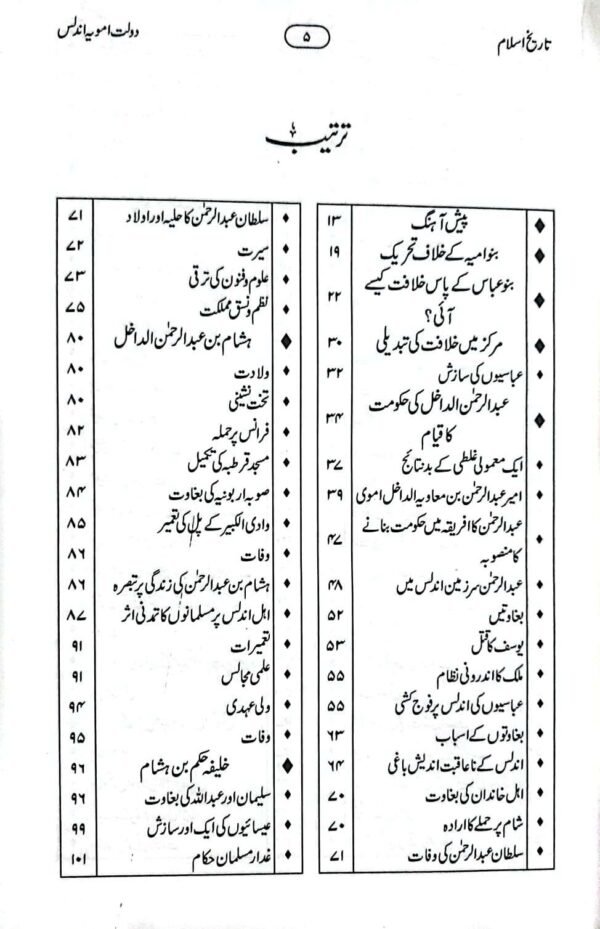 تاریخ اسلام ۵ دولت امویہ اندلس
ترتیب
پیش آہنگ ۱۳
بنو امیہ کے خلاف تحریک ۱۹
بنو عباس کے پاس خلافت کیسے
آئی؟ ۲۲
مرکز میں خلافت کی تبدیلی ۳۰
عباسیوں کی سازش ۳۲
عبدالرحمٰن الداخل کی حکومت
کا قیام ۳۴
ایک معمولی غلطی کے بد نتائج ۳۷
امیر عبدالرحمٰن بن معاویہ الداخل اموی ۳۹
عبدالرحمٰن کا افریقہ میں حکومت بنانے
کا منصوبہ ۴۷
عبدالرحمٰن سرزمین اندلس میں ۴۸
بغاوتیں ۵۲
یوسف کا قتل ۵۳
ملک کا اندرونی نظام ۵۵
عباسیوں کی اندلس پر فوج کشی ۵۵
بغاوتوں کے اسباب ۶۳
اندلس کے ناعاقبت اندیش باغی ۶۴
اہل خاندان کی بغاوت ۷۰
شام پر حملے کا ارادہ ۷۰
سلطان عبدالرحمٰن کی وفات ۷۱
سلطان عبدالرحمٰن کا حلیہ اور اولاد ۷۱
سیرت ۷۲
علوم و فنون کی ترقی ۷۳
نظم و نسق مملکت ۷۵
ہشام بن عبدالرحمٰن الداخل ۸۰
ولادت ۸۰
تخت نشینی ۸۰
فرانس پر حملہ ۸۲
مسجد قرطبہ کی تکمیل ۸۳
صوبہ اربونیہ کی بغاوت ۸۴
وادی الکبیر کے پل کی تعمیر ۸۵
وفات ۸۶
ہشام بن عبدالرحمٰن کی زندگی پر تبصرہ ۸۶
اہل اندلس پر مسلمانوں کا تمدنی اثر ۸۷
تعمیرات ۹۱
علمی مجالس ۹۱
ولی عہدی ۹۴
وفات ۹۵
خلیفہ حکم بن ہشام ۹۶
سلیمان اور عبداللہ کی بغاوت ۹۶
عیسائیوں کی ایک اور سازش ۹۹
غدار مسلمان حکام ۱۰۱